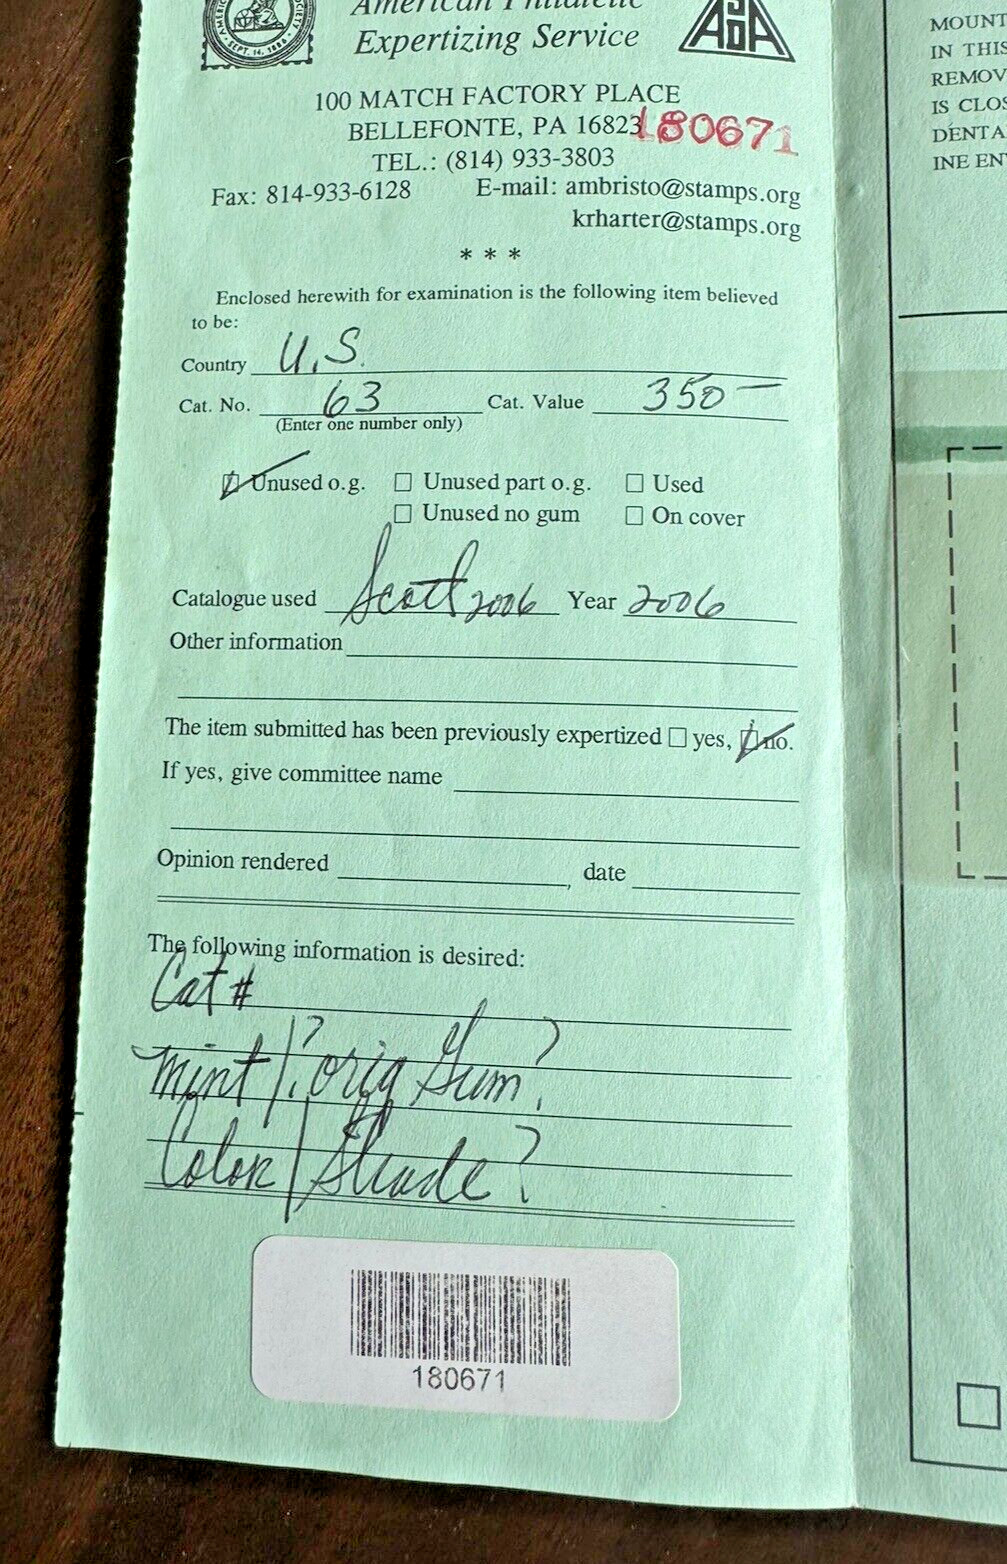 American Philatelic
Expertizing Service
SEPT. 14, 1886
100 MATCH FACTORY PLACE
BELLEFONTE, PA 16823
180671
TEL.: (814) 933-3803
Fax: 814-933-6128 E-mail: ambristo@stamps.org
krharter@stamps.org
* * *
Enclosed herewith for examination is the following item believed
to be:
Country U.S.
Cat. No. 63 Cat. Value 350—
(Enter one number only)
☑ Unused o.g. ☐ Unused part o.g. ☐ Used
☐ Unused no gum ☐ On cover
Catalogue used Scott 2006 Year 2006
Other information
The item submitted has been previously expertized ☐ yes, ☑ no.
If yes, give committee name
Opinion rendered , date
The following information is desired:
Cat #
mint/? orig Gum?
Color/Shade?
180671
MOUNT
IN THIS
REMOV
IS CLOS
DENTA
INE EN